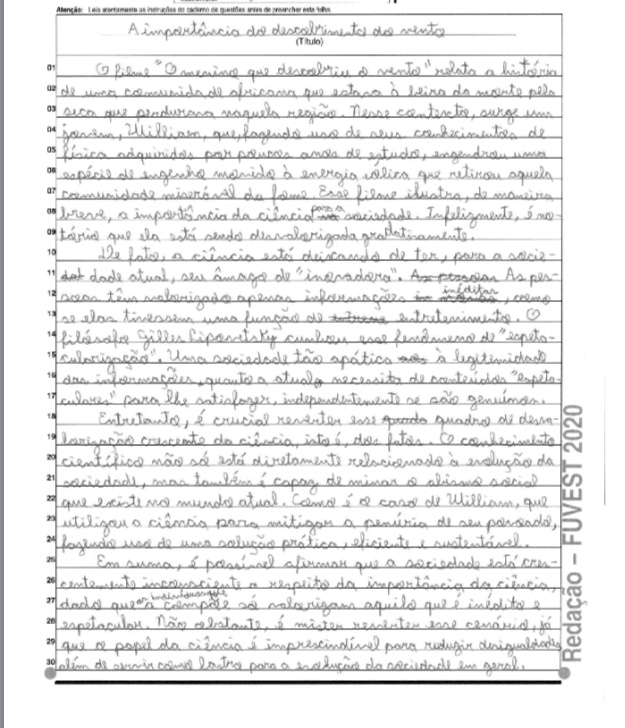 Atenção: Leia atentamente as instruções do caderno de questões antes de preencher esta folha.
A importância do descobrimento do vento
(Título)
01 O filme "O menino que descobriu o vento" relata a história
02 de uma comunidade africana que estava à beira da morte pela
03 seca que perdurava naquela região. Nesse contexto, surge um
04 jovem, William, que, fazendo uso de seus conhecimentos de
05 física adquiridos por poucos anos de estudo, engendrou uma
06 espécie de engenho movido à energia eólica que retirou aquela
07 comunidade miserável da fome. Esse filme ilustra, de maneira
08 breve, a importância da ciência para a sociedade. Infelizmente, é no-
09 tório que ela está sendo desvalorizada gradativamente.
10 De fato, a ciência está deixando de ter, para a socie-
11 dade atual, seu âmago de "inovadora". As pessoas As pes-
12 soas têm valorizado apenas informações inéditas, como
13 se elas tivessem uma função de entretenimento. O
14 filósofo Gilles Lipovetsky cunhou esse fenômeno de "espeta-
15 cularização". Uma sociedade tão apática à legitimidade
16 das informações, quanto a atual, necessita de conteúdos "espeta-
17 culares" para lhe satisfazer, independentemente se são genuínos.
18 Entretanto, é crucial reverter esse quadro de desva-
19 lorização crescente da ciência, isto é, dos fatos. O conhecimento
20 científico não só está diretamente relacionado à evolução da
21 sociedade, mas também é capaz de minar o abismo social
22 que existe no mundo atual. Como é o caso de William, que
23 utilizou a ciência para mitigar a penúria de seu povoado,
24 fazendo uso de uma solução prática, eficiente e sustentável.
25 Em suma, é possível afirmar que a sociedade está cres-
26 centemente inconsciente a respeito da importância da ciência,
27 dado que os indivíduos que a compõe só valorizam aquilo que é inédito e
28 espetacular. Não obstante, é mister reverter esse cenário, já
29 que o papel da ciência é imprescindível para reduzir desigualdades
30 além de servir como lastro para a evolução da sociedade em geral.
Redação – FUVEST 2020